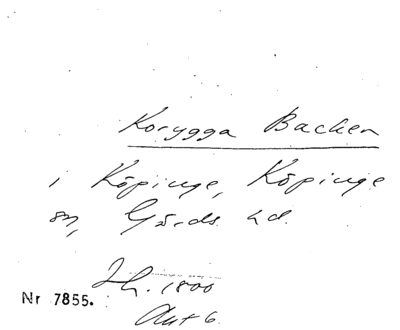 Korygga Backen
i Köpinge, Köpinge
sn, Gärds hd.
1800
Nr 7855.
Akt 6